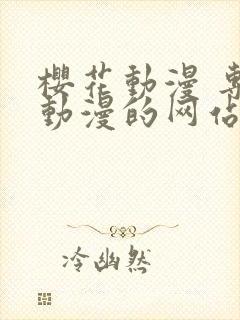 櫻花動漫 專
動漫的网站
冷幽然